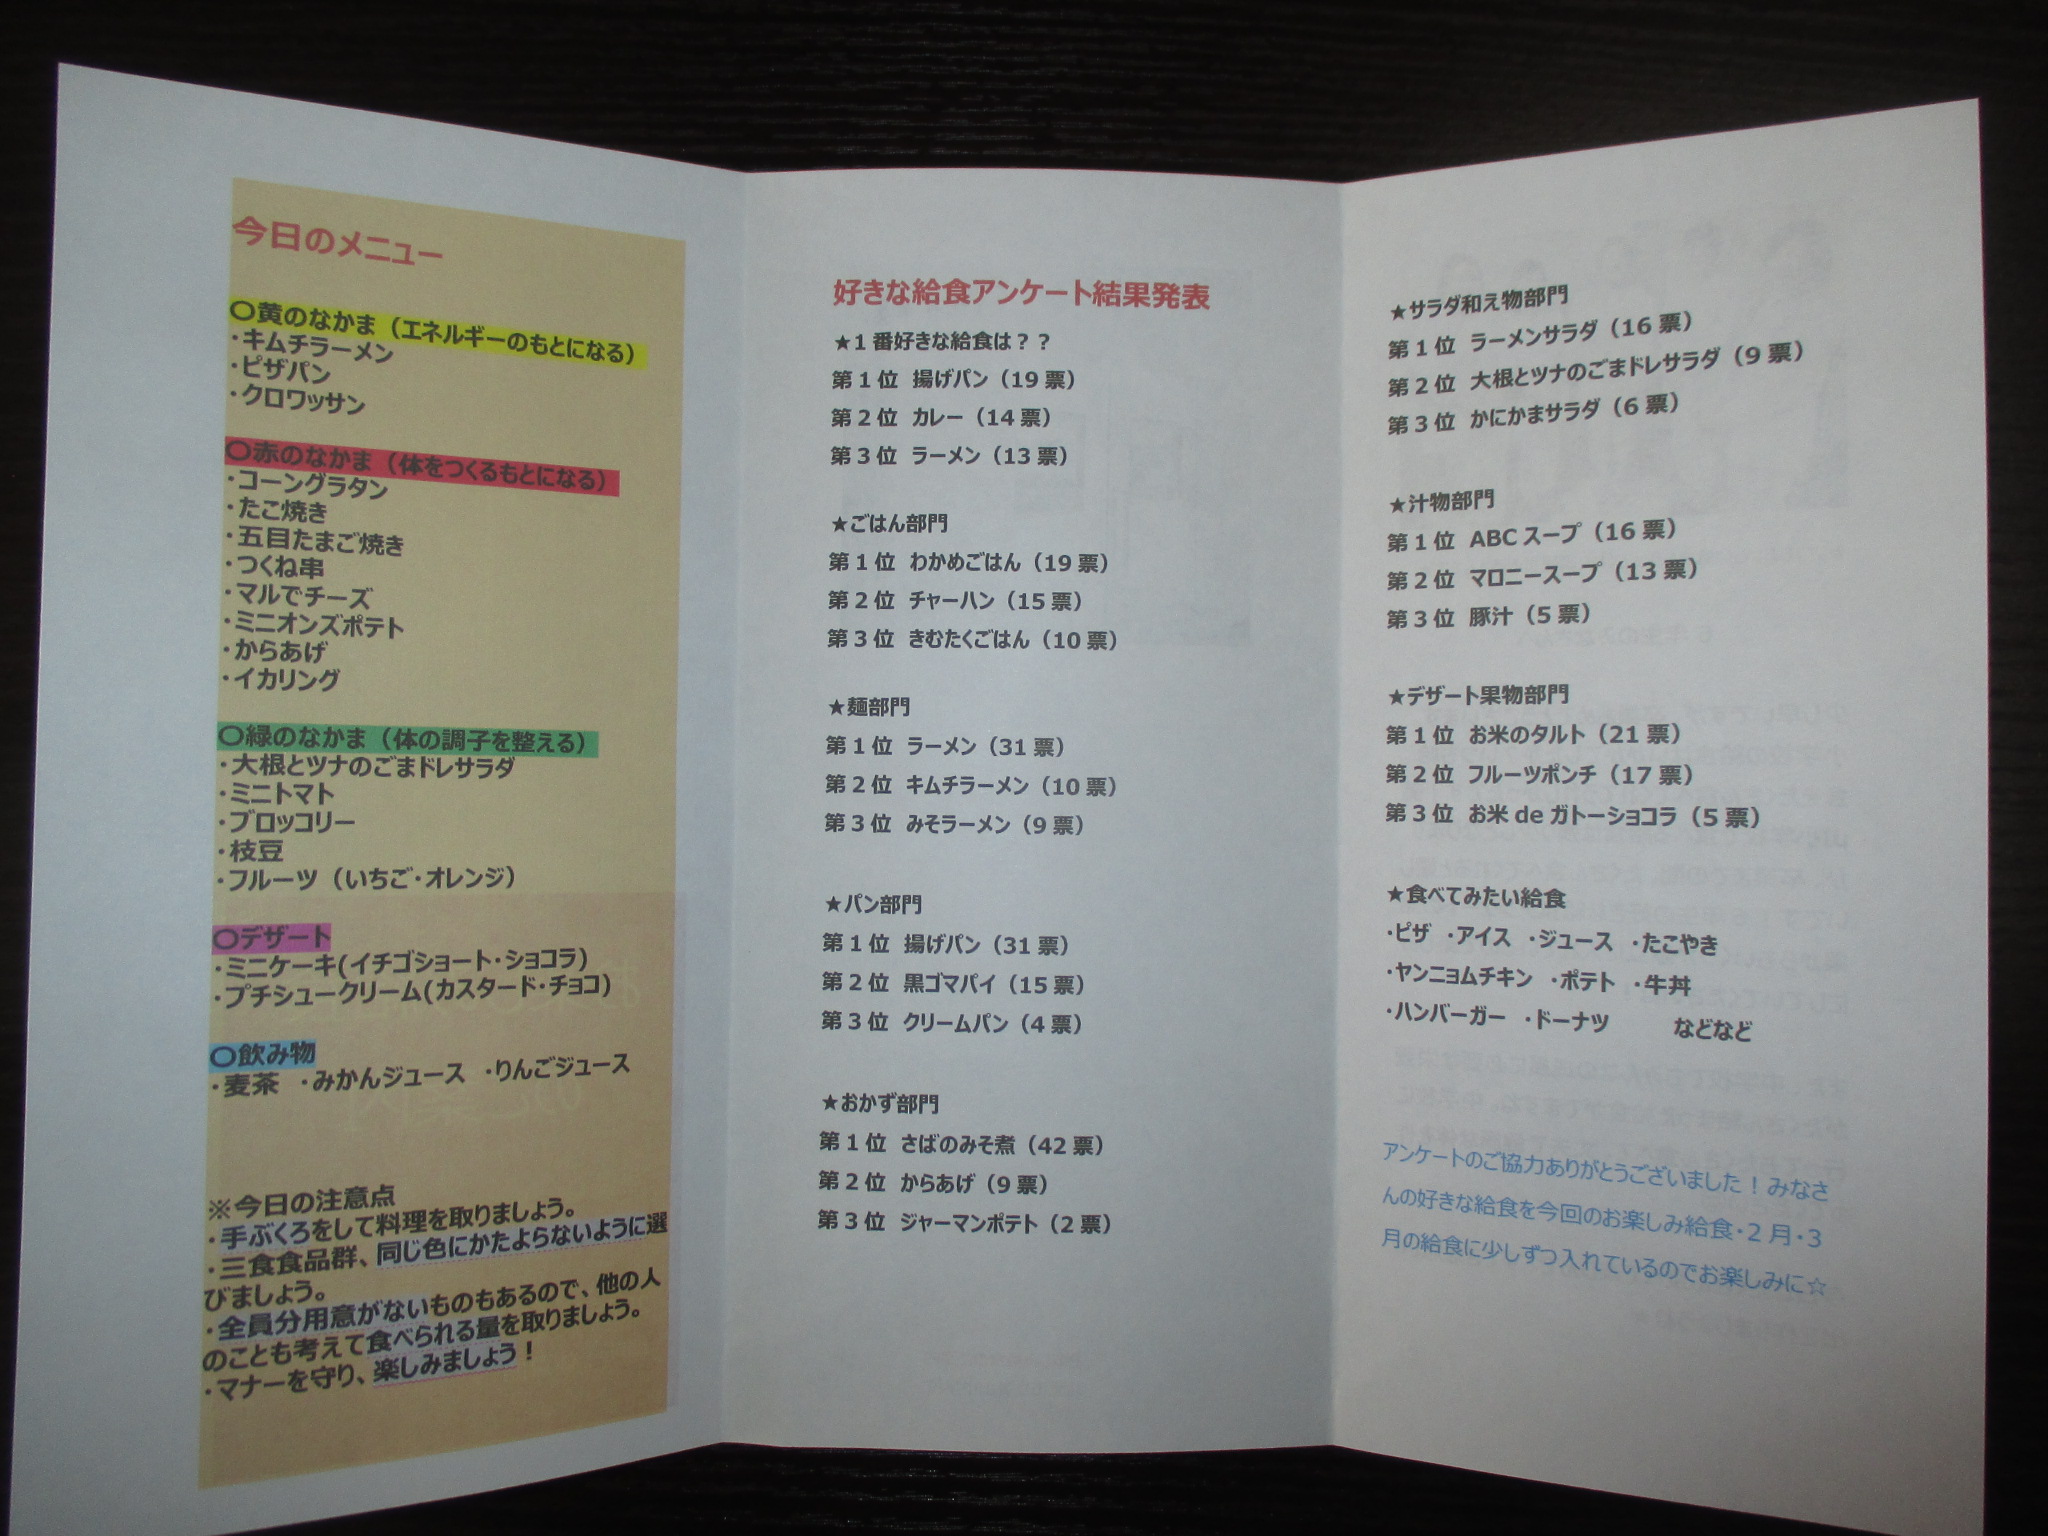 今日のメニュー
〇黄のなかま（エネルギーのもとになる）
・キムチラーメン
・ピザパン
・クロワッサン
〇赤のなかま（体をつくるもとになる）
・コーングラタン
・たこ焼き
・五目たまご焼き
・つくね串
・マルでチーズ
・ミニオンズポテト
・からあげ
・イカリング
〇緑のなかま（体の調子を整える）
・大根とツナのごまドレサラダ
・ミニトマト
・ブロッコリー
・枝豆
・フルーツ（いちご・オレンジ）
〇デザート
・ミニケーキ(イチゴショート・ショコラ)
・プチシュークリーム(カスタード・チョコ)
〇飲み物
・麦茶　・みかんジュース　・りんごジュース
※今日の注意点
・手ぶくろをして料理を取りましょう。
・三食食品群、同じ色にかたよらないように選
びましょう。
・全員分用意がないものもあるので、他の人
のことも考えて食べられる量を取りましょう。
・マナーを守り、楽しみましょう！
好きな給食アンケート結果発表
★1 番好きな給食は？？
第 1 位 揚げパン（19 票）
第 2 位 カレー（14 票）
第 3 位 ラーメン（13 票）
★ごはん部門
第 1 位 わかめごはん（19 票）
第 2 位 チャーハン（15 票）
第 3 位 きむたくごはん（10 票）
★麺部門
第 1 位 ラーメン（31 票）
第 2 位 キムチラーメン（10 票）
第 3 位 みそラーメン（9 票）
★パン部門
第 1 位 揚げパン（31 票）
第 2 位 黒ゴマパイ（15 票）
第 3 位 クリームパン（4 票）
★おかず部門
第 1 位 さばのみそ煮（42 票）
第 2 位 からあげ（9 票）
第 3 位 ジャーマンポテト（2 票）
★サラダ和え物部門
第 1 位 ラーメンサラダ（16 票）
第 2 位 大根とツナのごまドレサラダ（9 票）
第 3 位 かにかまサラダ（6 票）
★汁物部門
第 1 位 ABC スープ（16 票）
第 2 位 マロニースープ（13 票）
第 3 位 豚汁（5 票）
★デザート果物部門
第 1 位 お米のタルト（21 票）
第 2 位 フルーツポンチ（17 票）
第 3 位 お米 de ガトーショコラ（5 票）
★食べてみたい給食
・ピザ ・アイス ・ジュース ・たこやき
・ヤンニョムチキン ・ポテト ・牛丼
・ハンバーガー ・ドーナツ　　などなど
アンケートのご協力ありがとうございました！みなさ
んの好きな給食を今回のお楽しみ給食・2 月・3
月の給食に少しずつ入れているのでお楽しみに☆